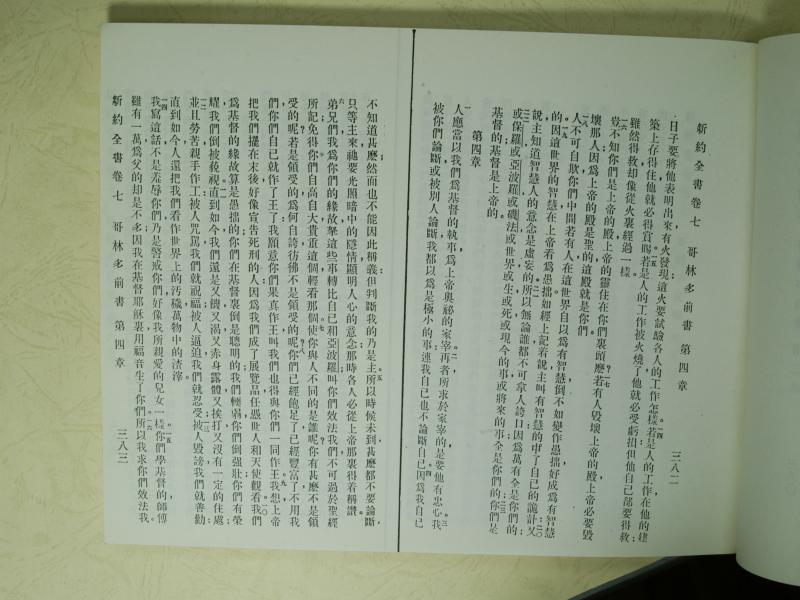 新約全書卷七　哥林多前書　第四章　三八二
日子要將他表明出來，有火發現；這火要試驗各人的工作怎樣。一四若是人的工作在他的建
築上存得住，他就必得賞賜。一五若是人的工作被火燒了，他就必受虧損；但他自己卻要得救；
雖然得救却像從火裏經過一樣。
一六豈不知你們是上帝的殿，上帝的靈住在你們裏頭麼？一七若有人毀壞上帝的殿，上帝必要毀
壞那人；因爲上帝的殿是聖的，這殿就是你們。
一八人不可自欺。你們中間若有人，在這世界自以爲有智慧，倒不如變作愚拙，好成爲有智慧
的。一九因這世界的智慧，在上帝看爲愚拙。如經上記着說：主叫有智慧的中了自己的詭計；二〇又
說：主知道智慧人的意念是虛妄的。二一所以無論誰，都不可拿人誇口；因爲萬有全是你們的；
二二或保羅，或亞波羅，或磯法，或世界，或生，或死，或現今的事，或將來的事，全是你們的；二三你們是
基督的；基督是上帝的。
第四章
一人應當以我們爲基督的執事，爲上帝奧祕的家宰。二再者，所求於家宰的，是要他有忠心。三我
被你們論斷，或被別人論斷，我都以爲是極小的事；連我自己也不論斷自己。四因爲我自己
不知道甚麼，然而也不能因此稱義；但判斷我的乃是主。五所以時候未到，甚麼都不要論斷，
只等主來，祂要光照暗中的隱情，顯明人心的意念；那時各人必從上帝那裏得着稱讚。
六弟兄們，我爲你們的緣故，拏這些事轉比自己和亞波羅；叫你們效法我們不可過於聖經
所記，免得你們自高自大，貴重這個，輕看那個。七使你與人不同的是誰呢？你有甚麼不是領
受的呢？若是領受的，爲何自誇，彷彿不是領受的呢？八你們已經飽足了，已經豐富了，不用我
們，你們自己就作了王了；我願意你們果真作王，叫我們也得與你們一同作王。九我想上帝
把我們擺在末後，好像宣告死刑的人；因爲我們成了展覽品，任憑世人和天使觀看。一〇我們
爲基督的緣故算是愚拙的，你們在基督裏倒是聰明的；我們輭弱，你們倒強壯；你們有榮
耀，我們倒被藐視。一一直到如今，我們還是又饑、又渴、又赤身露體、又挨打、又沒有一定的住處；
一二並且勞苦，親手作工；被人咒罵，我們就祝福；被人逼迫，我們就忍受；一三被人毀謗，我們就善勸；
直到如今，人還把我們看作世界上的汚穢，萬物中的渣滓。
一四我寫這話，不是羞辱你們，乃是警戒你們，好像我所親愛的兒女一樣。一五你們學基督的師傅
雖有一萬，爲父的却是不多；因我在基督耶穌裏用福音生了你們。一六所以我求你們效法我。
新約全書卷七　哥林多前書　第四章　三八三